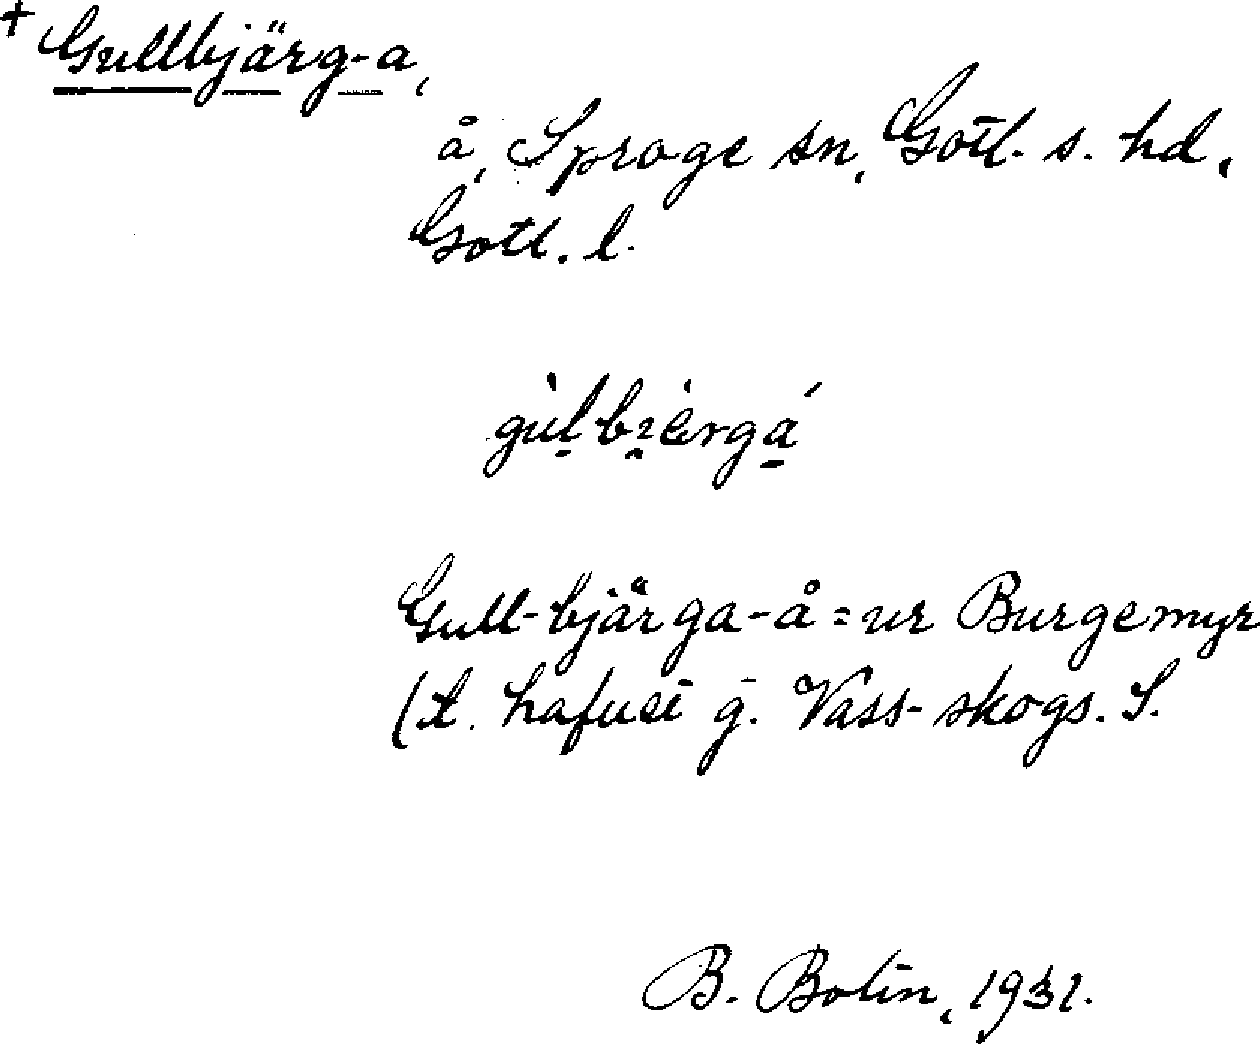 + Gullbjärg-a,
å, Sproge sn, Gotl. s. hd,
Gotl. l.
Gull-bjärga-å = ur Burgemyr
(t. hafuet g. Vass-skogs. S.
B. Bolin, 1931.